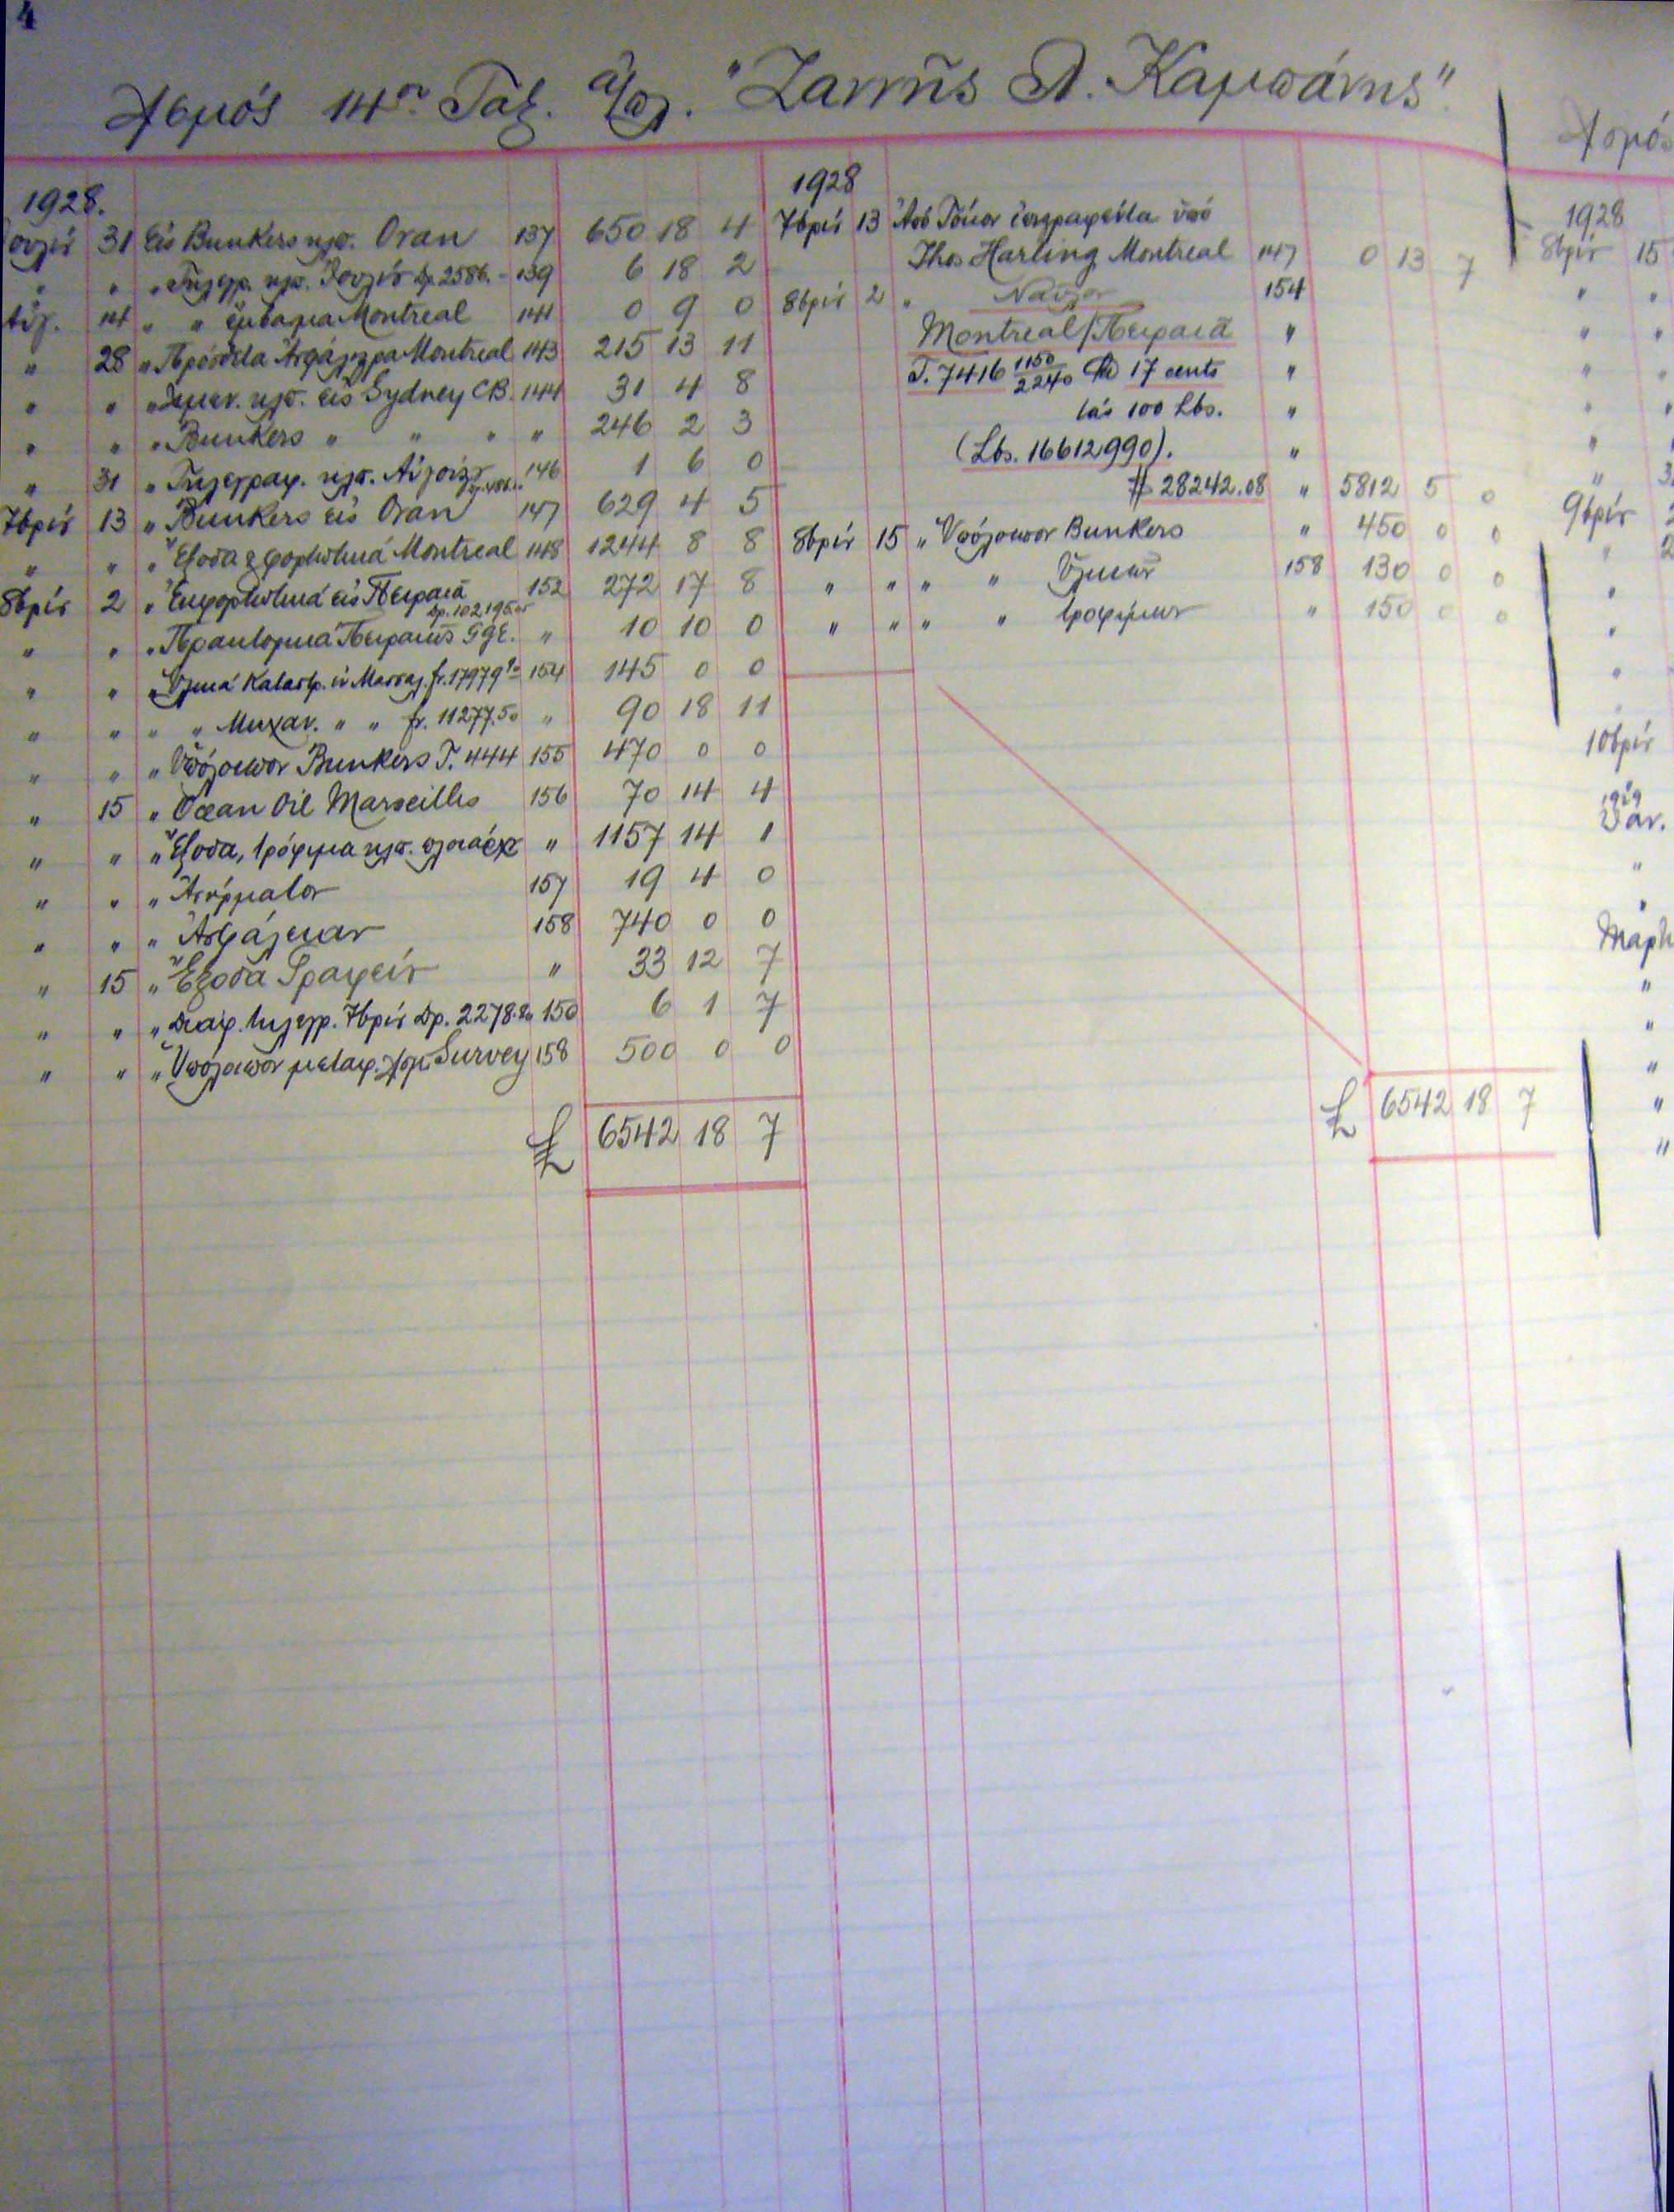 4
Λ)σμός 14ον Ταξ. ἀ/πλ. "Ζαννῆς Λ. Καμπάνης"
1928.
Ἰουλίου 31 Εἰς Bunkers κλπ. Oran 137 650 18 4
" " " Τηλεγρ. κλπ. Ἰουλίου Δρ. 2586.- 139 6 18 2
Αὔγ. 14 " " ἔμβασμα Montreal 141 0 9 0
" 28 " Πρόσοδα Montreal 143 215 13 11
" " " Λιμεν. κλπ. εἰς Sydney CB. 144 31 4 8
" " " Bunkers " " " " 246 2 3
" 31 " Τηλεγραφ. κλπ. Αὐγούστου 146 1 6 0
7βρίου 13 " Bunkers εἰς Oran 147 629 4 5
" " " Ἔξοδα & φορτωτικά Montreal 148 1244 8 8
8βρίου 2 " Ἐκφορτωτικά εἰς Πειραιᾶ 152 272 17 8
Δρ. 102195.05
" " " Πρακτορικά Πειραιῶς " 10 10 0
" " " Ὑλικά Καταστρ. ἐν Μασσαλ. fr. 17979.90 154 145 0 0
" " " " Μηχαν. " " fr. 11277.50 " 90 18 11
" " " Ὑπόλοιπον Bunkers T. 444 155 470 0 0
" 15 " Ocean Oil Marseilles 156 70 14 4
" " " Ἔξοδα, τρόφιμα κλπ. πλοιάρχ " 1157 14 1
" " " Ἀσύρματον 157 19 4 0
" " " Ἀσφάλειαν 158 740 0 0
" 15 " Ἔξοδα Γραφείου " 33 12 7
" " " Διάφ. τηλεγρ. 7βρίου Δρ. 2278.80 150 6 1 7
" " " Ὑπόλοιπον μεταφ. Λ)σμ. Survey 158 500 0 0
£ 6542 18 7
1928
7βρίου 13 Ἀπό Τόκον ἐγγραφέντα ὑπό
Thos Harling Montreal 147 0 13 7
8βρίου 2 " Ναῦλον 154
Montreal/Πειραιᾶ "
T. 7416 1150/2240 @ 17 cents "
τάς 100 Lbs. "
(Lbs. 16612990). "
$ 28242.08 " 5812 5 0
8βρίου 15 " Ὑπόλοιπον Bunkers " 450 0 0
" " " " Ὑλικῶν 158 130 0 0
" " " " τροφίμων " 150 0 0
£ 6542 18 7
Λ)σμός
1928
8βρίου 15
9βρίου
10βρίου
1929
Ἰαν.
Μαρτ